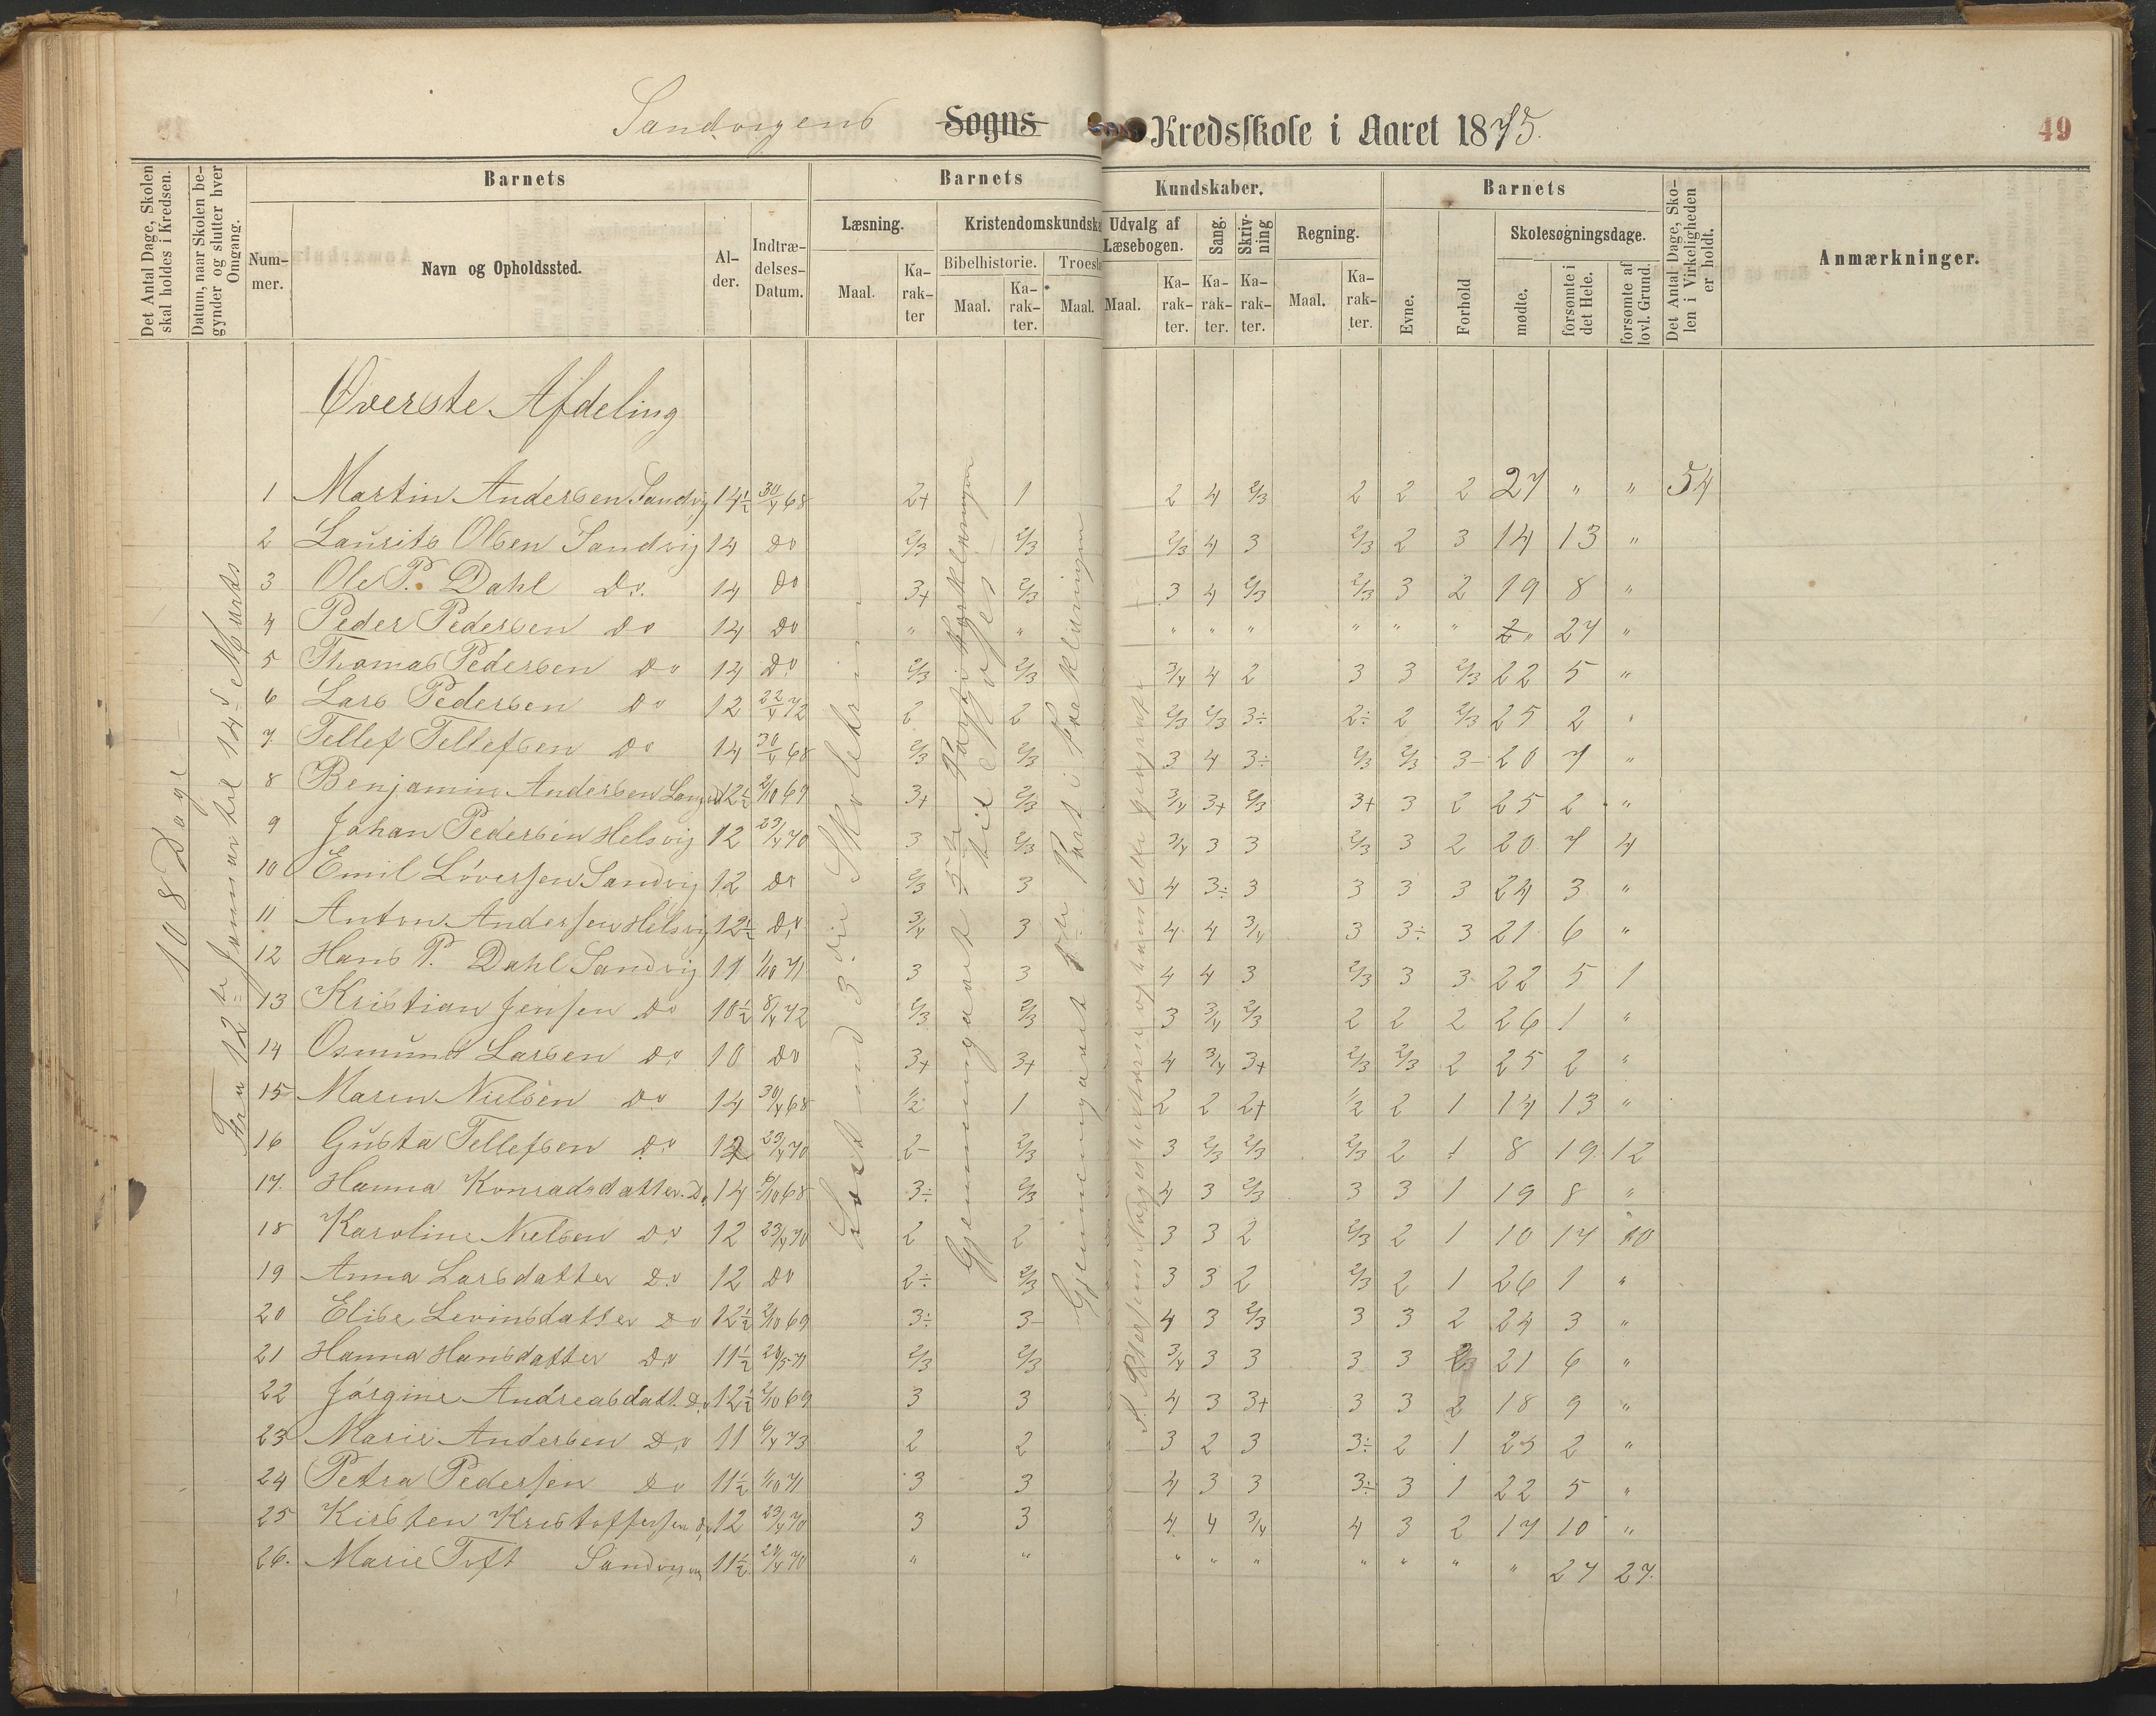 Sandvigens Sogns Kredsskole i Aaret 1875.
49
Det Antal Dage, Skolen skal holdes i Kredsen.
Datum, naar Skolen begynder og slutter hver Omgang.
Barnets
Nummer.
Navn og Opholdssted.
Alder.
Indtrædelses-Datum.
Barnets
Læsning.
Maal.
Karakter
Kristendomskundska
Bibelhistorie.
Maal.
Karakter.
Troesl
Maal.
Kundskaber.
Udvalg af Læsebogen.
Maal.
Karakter.
Sang.
Karakter.
Skrivning
Karakter.
Regning.
Maal.
Karakter.
Barnets
Evne.
Forhold
Skolesøgningsdage.
mødte.
forsømte i det Hele.
forsømte af lovl. Grund.
Det Antal Dage, Skolen i Virkeligheden er holdt.
Anmærkninger.
108 Dage
Fra 12te Januar til 14de Marts
Øverste Afdeling
Læst ind 3die Skoletrin
Gjennemgaaet
Gjennemgaaet Part i Forklaringen
1 Martin Andersen Sandvig 14½ 30/4 68 2+ 1 2 4 2/3 2 2 2 27 " " 54
2 Laurits Olsen Sandvig 14 Do 2/3 2/3 2/3 4 3 2/3 2 3 14 13 "
3 Ole P. Dahl Do. 14 Do 3+ 2/3 3 4 2/3 2/3 3 2 19 8 "
4 Peder Pedersen Do 14 Do " " " " " " " " 2 " 27 "
5 Thomas Pedersen Do 14 Do 2/3 2/3 3/4 4 2 3 3 2/3 22 5 "
6 Lars Pedersen Do 12 22/4 72 2 2 2/3 2/3 3÷ 2÷ 2 2/3 25 2 "
7. Tellef Tellefsen Do 14 30/4 68 2/3 2/3 3 4 3÷ 2/3 2/3 3- 20 7 "
8 Benjamin Andersen 12½ 2/10 67 3+ 2/3 3/4 3+ 2/3 3+ 3 2 25 2 "
9 Johan Pedersen Helsvig 12 23/4 70 3 2/3 3/4 3 3 2/3 3 2 20 7 4
10 Emil Löversen Sandvig 12 Do 2/3 3 4 3÷ 3 3 3 3 24 3 "
11 Anton Andersen Helsvig 12½ Do 3/4 3 4 4 3/4 3 3÷ 3 21 6 "
12 Hans P. Dahl Sandvig 11 1/10 71 3 3 4 4 3 2/3 3 3 22 5 1
13 Kristian Jensen Do 10½ 8/4 72 2/3 2/3 3 3/4 2/3 2 2 2 26 1 "
14 Osmund Larsen Do 10 Do 3+ 3+ 4 3/4 3+ 2/3 2/3 2 25 2 "
15 Maren Nielsen Do 14 30/4 68 1/2 1 2 2 2+ 1/2 2 1 14 13 "
16 Gusta Tellefsen Do 12 23/4 70 2- 2/3 3 2/3 2/3 2/3 2 1 8 19 12
17. Hanna Konradsdatter. Do 14 6/10 68 3÷ 2/3 4 3 2/3 3 3 1 19 8 "
18 Karoline Nielsen Do 12 23/4 70 2 2 3 3 2 2/3 2 1 10 17 10
19 Anna Larsdatter Do 12 Do 2÷ 2/3 3 3 2 2/3 2 1 26 1 "
20 Elise Levinsdatter Do 12½ 2/10 69 3÷ 3- 4 3 2/3 3 3 2 24 3 "
21 Hanna Hansdatter Do 11½ 71 2/3 2/3 3/4 3 3 3 3 21 6 "
22 Jörgine Andreasdatt. Do 12½ 2/10 69 3 3 4 3 3+ 3 3 2 18 9 "
23 Marie Andersen Do 11 6/4 73 2 2 3 2 3 3÷ 2 1 25 2 "
24 Petra Pedersen Do 11½ 1/10 71 3 3 4 3 3 3÷ 3 1 22 5 "
25 Kirsten Kristoffersen Do 12 23/4 70 3 3 4 4 3/4 4 3 2 17 10 "
26. Marie Toft Sandvigen 11½ 24/4 70 " " " " " " " " " 27 27.